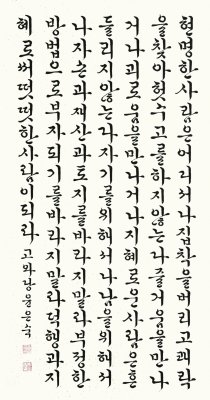 현명한사람은어디서나집착을버리고쾌락
을찾아헛수고를하지않는다즐거움을만나
거나괴로움을만나거나지혜로운사람은흔
들리지않는다자기를위해서나남을위해서
나자손과재산과토지를바라지말라부정한
방법으로부자되기를바라지말라덕행과지
혜로써떳떳한사람이되라